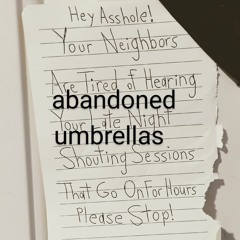 Hey Asshole!
Your Neighbors
Are Tired of Hearing
abandoned
Your Late Night
umbrellas
Shouting Sessions
That Go On For Hours
Please Stop!